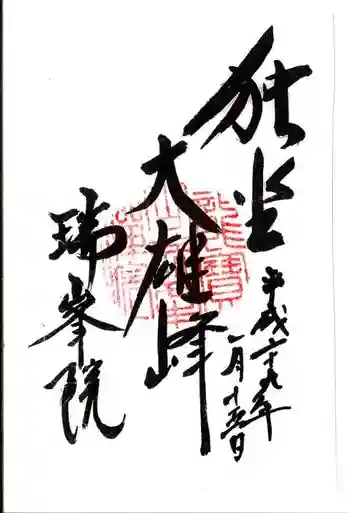 独坐
大雄峰
瑞峯院
平成二十九年
一月十五日